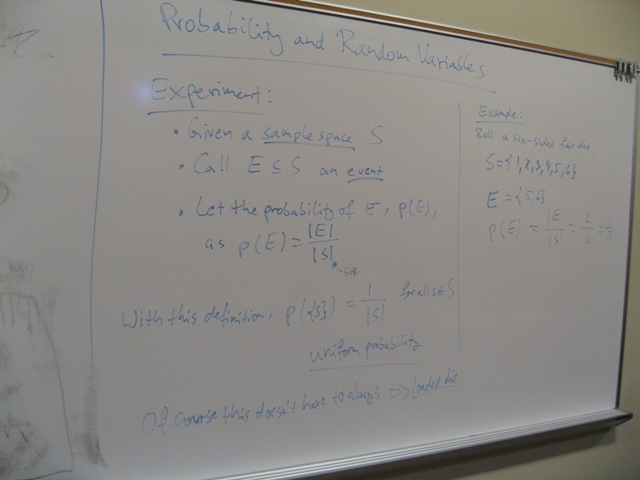 Probability and Random Variables
Experiment:
• Given a sample space S
• Call E ⊆ S an event
• Let the probability of E, p(E),
as p(E) = |E| / |S|
With this definition, p({s}) = 1 / |S| for all s ∈ S
uniform probability
Of course this doesn't have to always => loaded die
Example:
Roll a six-sided fair die.
S = {1,2,3,4,5,6}
E = {5,6}
p(E) = |E| / |S| = 2 / 6 = 1/3